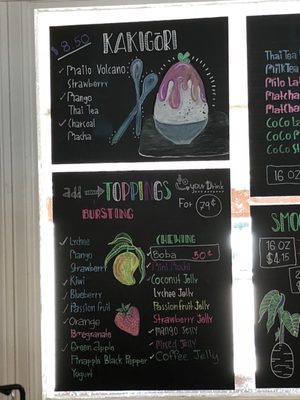 $8.50
KAKIGORI
✓ Mailo Volcano:
Strawberry
✓ Mango
Thai Tea
✓ Charcoal
Macha
add TOPPINGS your Drink
For 79¢
BURSTING
✓ Lychee
Mango
Strawberry
✓ Kiwi
✓ Blueberry
✓ Passion fruit
✓ Orange
Pomegranate
✓ Green apple
Pineapple Black Pepper
Yogurt
CHEWING
Boba 50¢
Mini Mochi
✓ Coconut Jelly
Lychee Jelly
Passionfruit Jelly
Strawberry Jelly
✓ Mango Jelly
Mixed Jelly
✓ Coffee Jelly
Thai Tea
Milk Tea
Milo
Matcha
Matcha
CoCo
CoCo
CoCo
16 OZ
SMO
16 OZ
$4.15